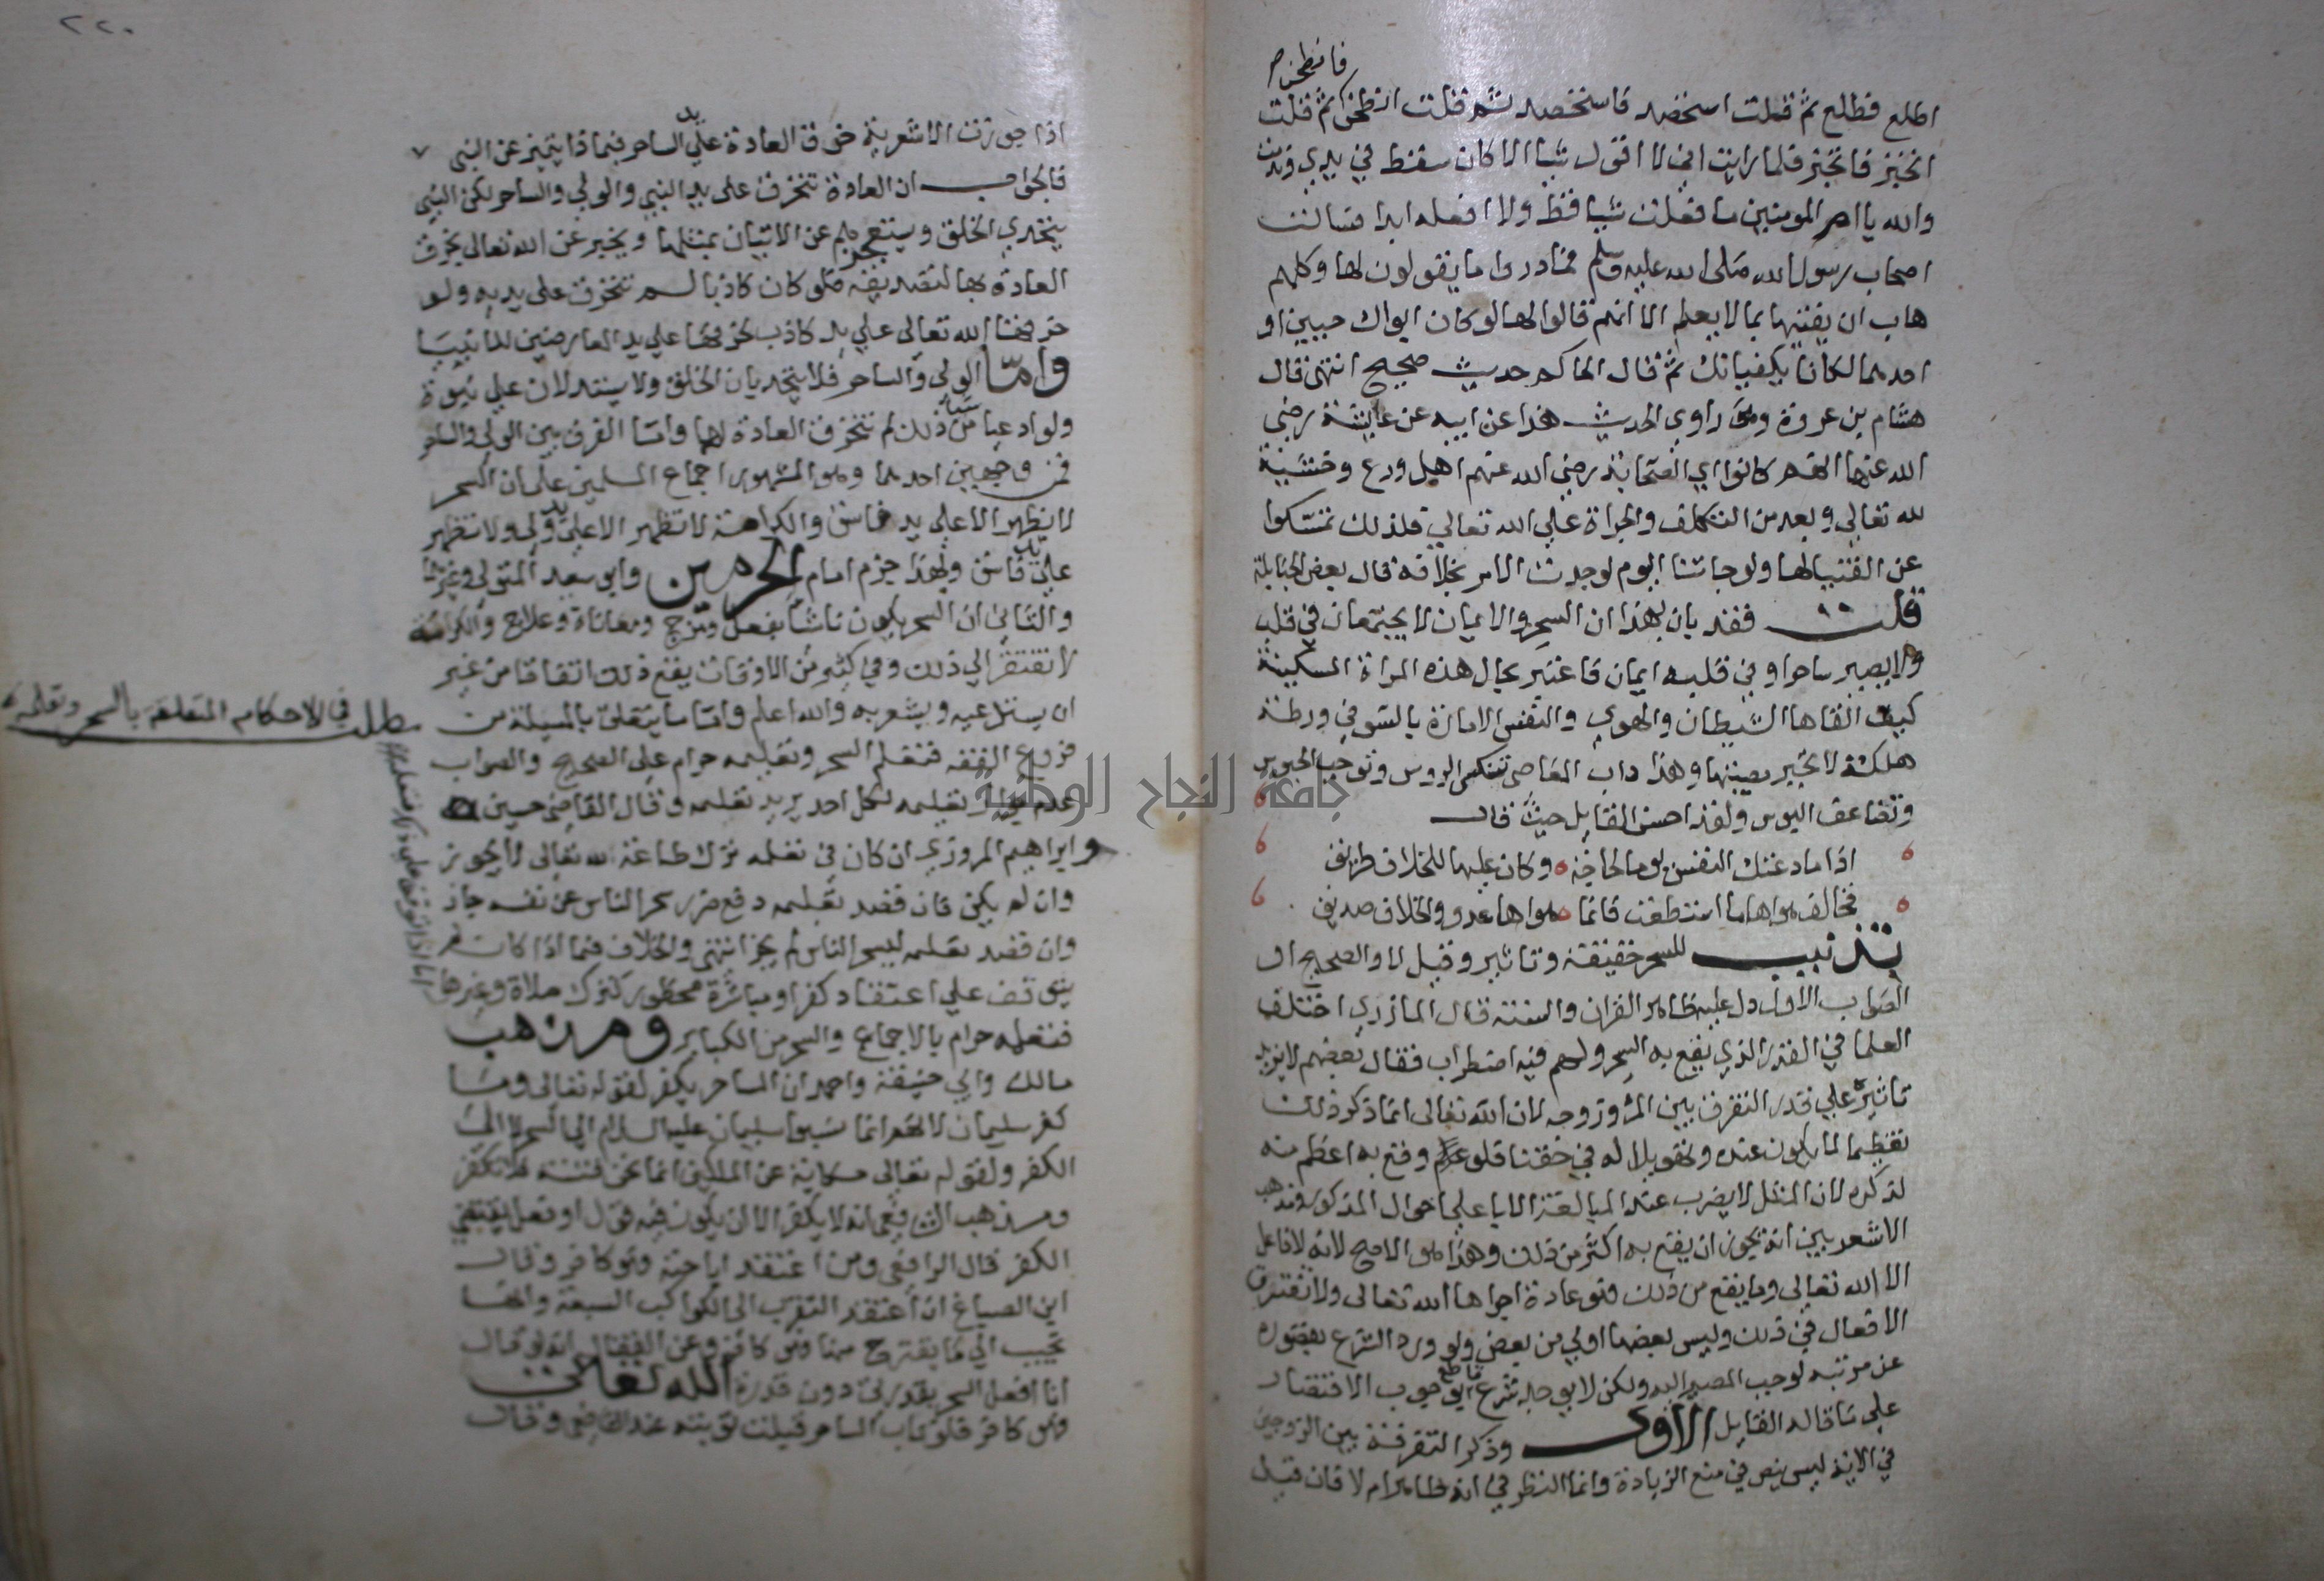 فانطحن
اطلع فطلع ثم قلت استحصد فاستحصد ثم قلت انطحن ثم قلت
انخبز فانخبز فلما رايت اني لا اقول شيا الا كان سقط في يدي وندمت
والله يا ام المومنين ما فعلت شيا قط ولا افعله ابدا فسالت
اصحاب رسول الله صلى الله عليه وسلم فما دروا ما يقولون لها وكلهم
هاب ان يفتيها بما لا يعلم الا انهم قالوا لها لو كان ابواك حيين او
احدهما لكانا يكفيانك ثم قال الحاكم حديث صحيح انتهى قال
هشام بن عروة وهو راوي الحديث هذا عن ابيه عن عايشة رضي
الله عنها انهم كانوا اي الصحابة رضي الله عنهم اهل ورع وخشية
لله تعالى وبعد من التكلف والجراة على الله تعالى فلذلك تمسكوا
عن الفتيا لها ولو جاتنا اليوم لوجدت الامر بخلافه قال بعض الحنابلة
قلت فقد بان بهذا ان السحر والايمان لا يجتمعان في قلب
ولا يصير ساحرا وفي قلبه ايمان فاعتبر بحال هذه المراة المسكينة
كيف القاها الشيطان والهوى والنفس الامارة بالسو في ورطة
هلكة لا تجبر مصيبتها وهذا داب المعاصي تنكس الروس وتوجب الحبوس
وتضاعف البوس ولقد احسن القايل حيث قال
اذا ما دعتك النفس يوما لحاجة وكان عليها للخلاف طريق
فخالف هواها ما استطعت فانما هواها عدو والخلاف صديق
تذنيب للسحر حقيقة وتاثير وقيل لا والصحيح او
الصواب الاول دل عليه ظاهر القران والسنة قال المازري اختلف
العلما في القدر الذي يقع به السحر ولهم فيه اضطراب فقال بعضهم لا يزيد
تاثيره على قدر التفرق بين المر وزوجه لان الله تعالى انما ذكر ذلك
تعظيما لما يكون عنده وتهويلا له في حقنا فلو وقع به اعظم منه
لذكره لان المثل لا يضرب عند المبالغة الا باعلى احوال المذكور ومذهب
الاشعريين انه يجوز ان يقع به اكثر من ذلك وهذا هو الاصح لانه لا فاعل
الا الله تعالى وما يقع من ذلك فهو عادة اجراها الله تعالى ولا تفترق
الافعال في ذلك وليس بعضها اولى من بعض ولو ورد الشرع بقصوره
عن مرتبه لوجب المصير اليه ولكن لا يوجد شرع قاطع يوجب الاقتصار
على ما قاله القايل الاول وذكر التفرقة بين الزوجين
في الاية ليس بنص في منع الزيادة وانما النظر في انه ظاهر ام لا فان قيل
٢٢٠
اذا جوزت الاشعرية خرق العادة على يد الساحر فبماذا يتميز عن النبي
فالجواب ان العادة تنخرق على يد النبي والولي والساحر لكن النبي
يتحدى الخلق ويستعجزهم عن الاتيان بمثلها ويخبر عن الله تعالى بخرق
العادة بها لتصديقه فلو كان كاذبا لم تنخرق على يديه ولو
خرقها الله تعالى على يد كاذب لخرقها على يد المعارضين للانبيا
واما الولي والساحر فلا يتحديان الخلق ولا يستدلان على نبوة
ولو ادعيا شيا من ذلك لم تنخرق العادة لهما واما الفرق بين الولي والساحر
فمن وجهين احدهما وهو المشهور اجماع المسلمين على ان السحر
لا يظهر الا على يد فاسق والكرامة لا تظهر الا على يد ولي ولا تظهر
على يد فاسق وبهذا جزم امام الحرمين وابو سعد المتولي وغيرهما
والثاني ان السحر يكون ناشيا بفعل ومزج ومعاناة وعلاج والكرامة
لا تفتقر الى ذلك وفي كثير من الاوقات يقع ذلك اتفاقا من غير
ان يستدعيه ويشعر به والله اعلم واما ما يتعلق بالمسيلة من
مطلب في الاحكام المتعلقة بالسحر وتعلمه
فروع الفقه فتعلم السحر وتعليمه حرام على الصحيح والصواب
عدم تعليمه لكل احد يريد تعلمه وقال القاضي حسين
وابراهيم المروزي ان كان في تعلمه ترك طاعة الله تعالى لا يجوز
وان لم يكن فان قصد بتعلمه دفع ضرر سحر الناس عن نفسه جاز
وان قصد بتعلمه ليسحر الناس لم يجز انتهى والخلاف فيما اذا كان لم
يتوقف على اعتقاد كفر او مباشرة محظور كترك صلاة وغيرها
فتعلمه حرام بالاجماع والسحر من الكباير ومذهب
مالك وابي حنيفة واحمد ان الساحر يكفر لقوله تعالى وما
كفر سليمان لانهم انما نسبوا سليمان عليه السلام الى السحر لا الى
الكفر ولقوله تعالى حكاية عن الملكين انما نحن فتنة فلا تكفر
ومذهب الشافعي انه لا يكفر الا ان يكون فيه قول او فعل يقتضي
الكفر قال الرافعي ومن اعتقد اباحته فهو كافر وقال
ابن الصباغ ان اعتقد التقرب الى الكواكب السبعة وانها
تجيب الى ما يقترح منها فهو كافر وعن القفال انه لو قال
انا افعل السحر بقدرتي دون قدرة الله تعالى
فهو كافر فلو تاب الساحر قبلت توبته عند الشافعي وقال
جامعة النجاح الوطنية